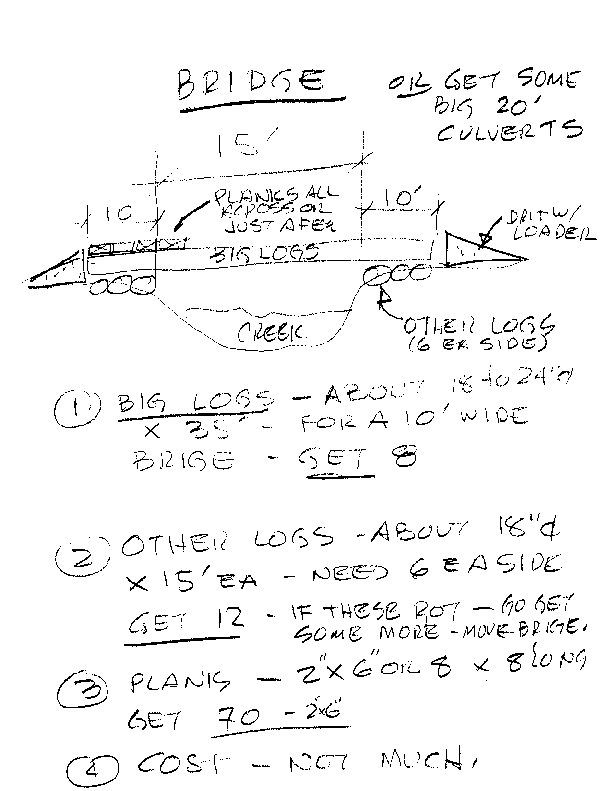 BRIDGE
OR GET SOME
BIG 20'
CULVERTS
15'
10
PLANKS ALL
ACROSS OR
JUST A FEW
10'
DIRT W/
LOADER
BIG LOGS
CREEK
OTHER LOGS
(6 EA SIDE)
① BIG LOGS - ABOUT 18 to 24"φ
X 35' - FOR A 10' WIDE
BRIGE - GET 8
② OTHER LOGS - ABOUT 18"¢
X 15' EA - NEED 6 EA SIDE
GET 12 - IF THESE ROT - GO GET
SOME MORE - MOVE BRIGE.
③ PLANKS - 2"X6" OR 8 X 8 LONG
GET 70 - 2"x6"
④ COST - NOT MUCH.